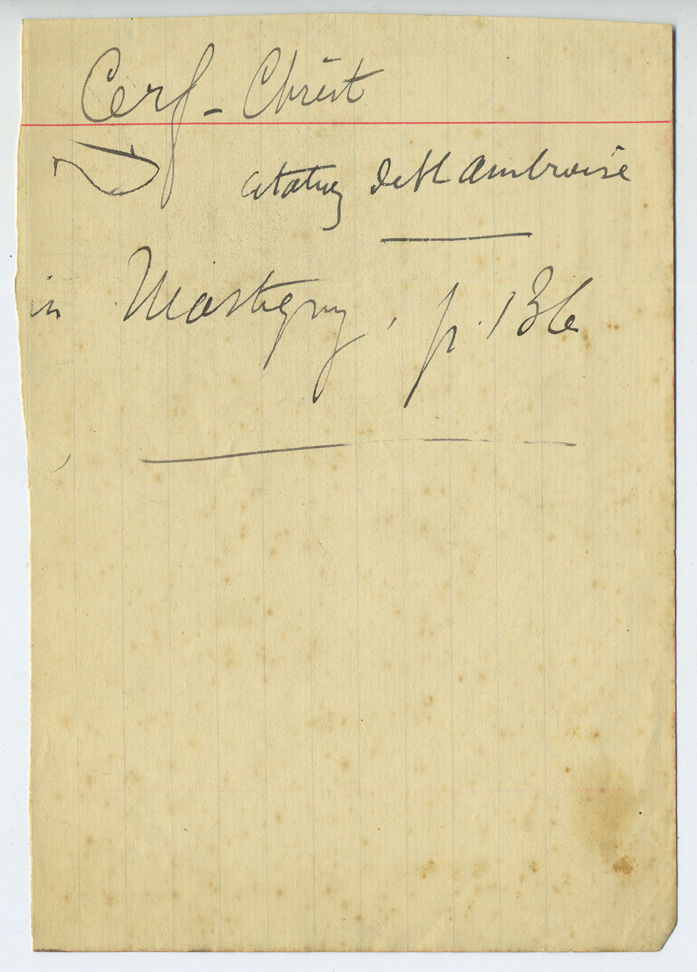 Cerf - Christ
citation de St Ambroise
in Martigny, p. 136